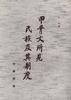 甲骨文所見
氏族及其制度